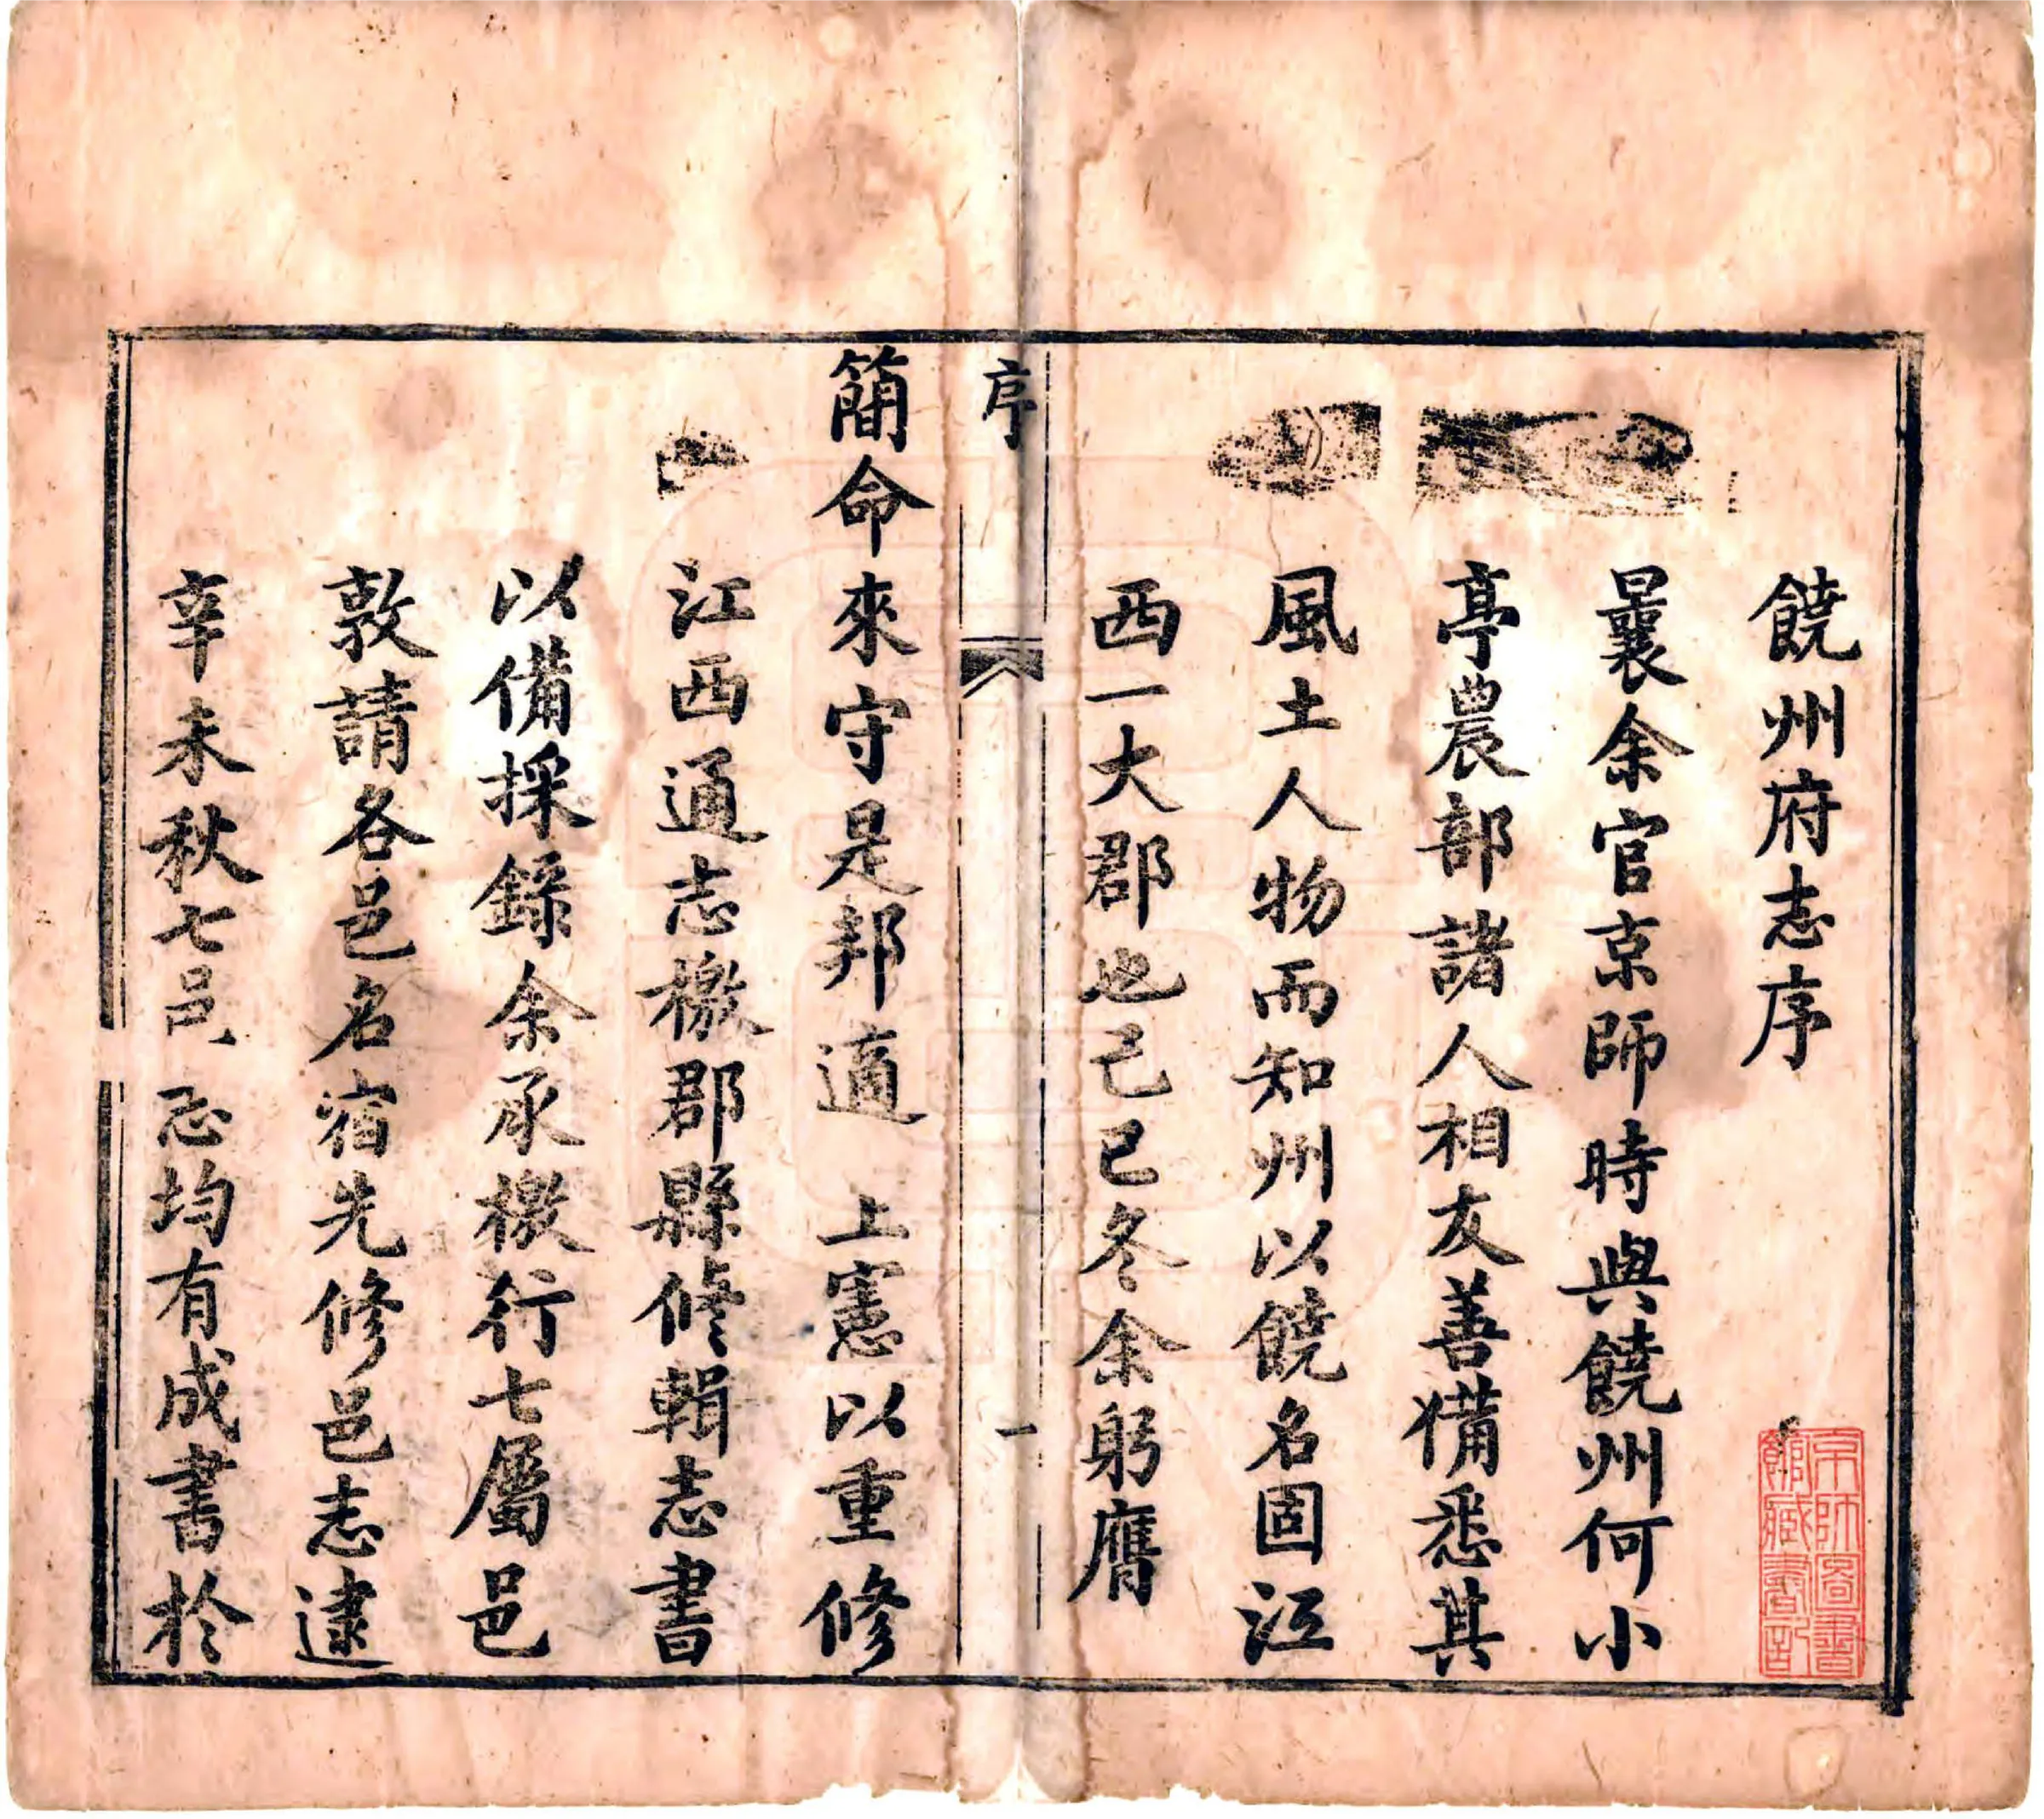 饒州府志序
曩余官京師時與饒州何小
亭農部諸人相友善備悉其
風土人物而知州以饒名固江
西一大郡也己巳冬余躬膺
序
一
簡命來守是邦適 上憲以重修
江西通志檄郡縣修輯志書
以備採錄余承檄行七屬邑
敦請各邑名宿先修邑志逮
辛未秋七邑志均有成書於
京師圖書
館藏書記